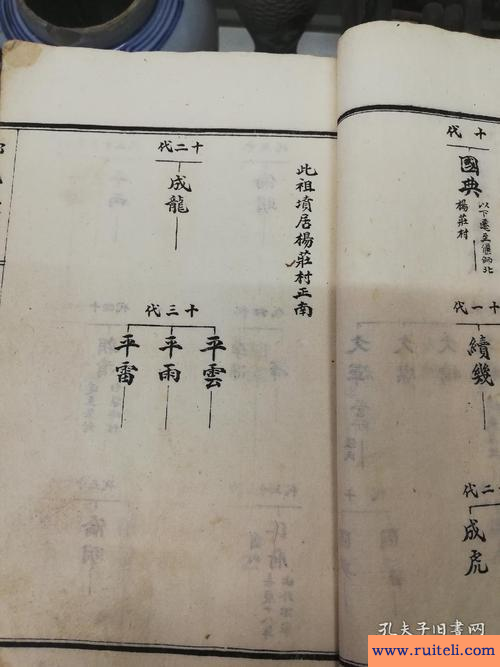 十代
國典
以下遷
北
楊莊村
十一代
續幾
二代
成虎
此祖墳居楊莊村正南
十二代
成龍
十三代
平雲
平雨
平雷
孔夫子旧書网
www.ruiteli.com